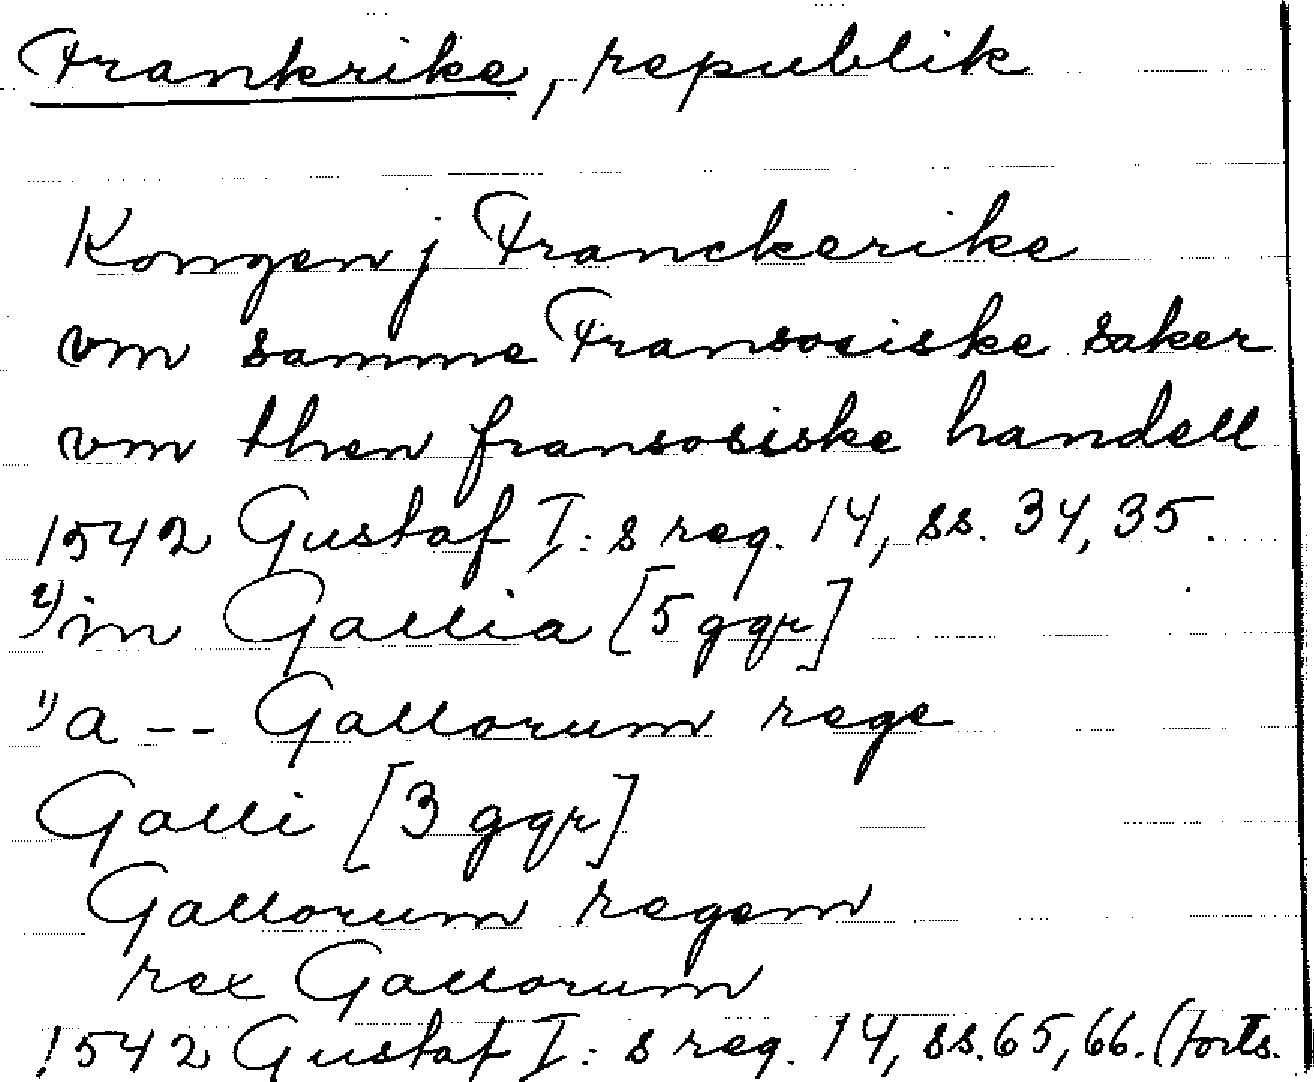 Frankrike, republik
Kongen j Franckerike
vm samme Fransosiske saker
vm then fransosiske handell
1542 Gustaf I:s reg. 14, ss. 34, 35.
2) in Gallia [5 ggr]
1) a -- Gallorum rege
Galli [3 ggr]
Gallorum regem
rex Gallorum
1542 Gustaf I:s reg. 14, ss. 65, 66. (forts.